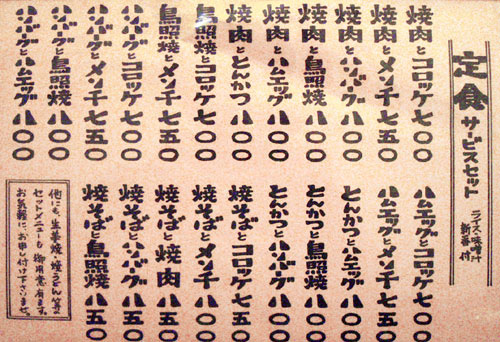 定食 サービスセット
ライス・味噌汁
新香付
焼肉とコロッケ七〇〇
焼肉とメンチ七五〇
焼肉とハンバーグ八〇〇
焼肉と鳥照焼八〇〇
焼肉とハムエッグ八〇〇
焼肉ととんかつ八〇〇
鳥照焼とコロッケ七〇〇
鳥照焼とメンチ七五〇
ハンバーグとコロッケ七〇〇
ハンバーグとメンチ七五〇
ハンバーグと鳥照焼八〇〇
ハンバーグとハムエッグ八〇〇
ハムエッグとコロッケ七〇〇
ハムエッグとメンチ七五〇
とんかつとハムエッグ八〇〇
とんかつと鳥照焼八〇〇
とんかつとハンバーグ八〇〇
焼そばとコロッケ七五〇
焼そばとメンチ八〇〇
焼そばと焼肉八五〇
焼そばとハンバーグ八五〇
焼そばと鳥照焼八五〇
他にも、生姜焼・焼うどん等の
セットメニューも御用意有ります。
お気軽にお申し付け下さいませ。